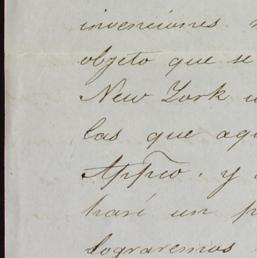 invenciones
objeto que se
New York
las que aqu
Appco. y
haré un p
lograremos